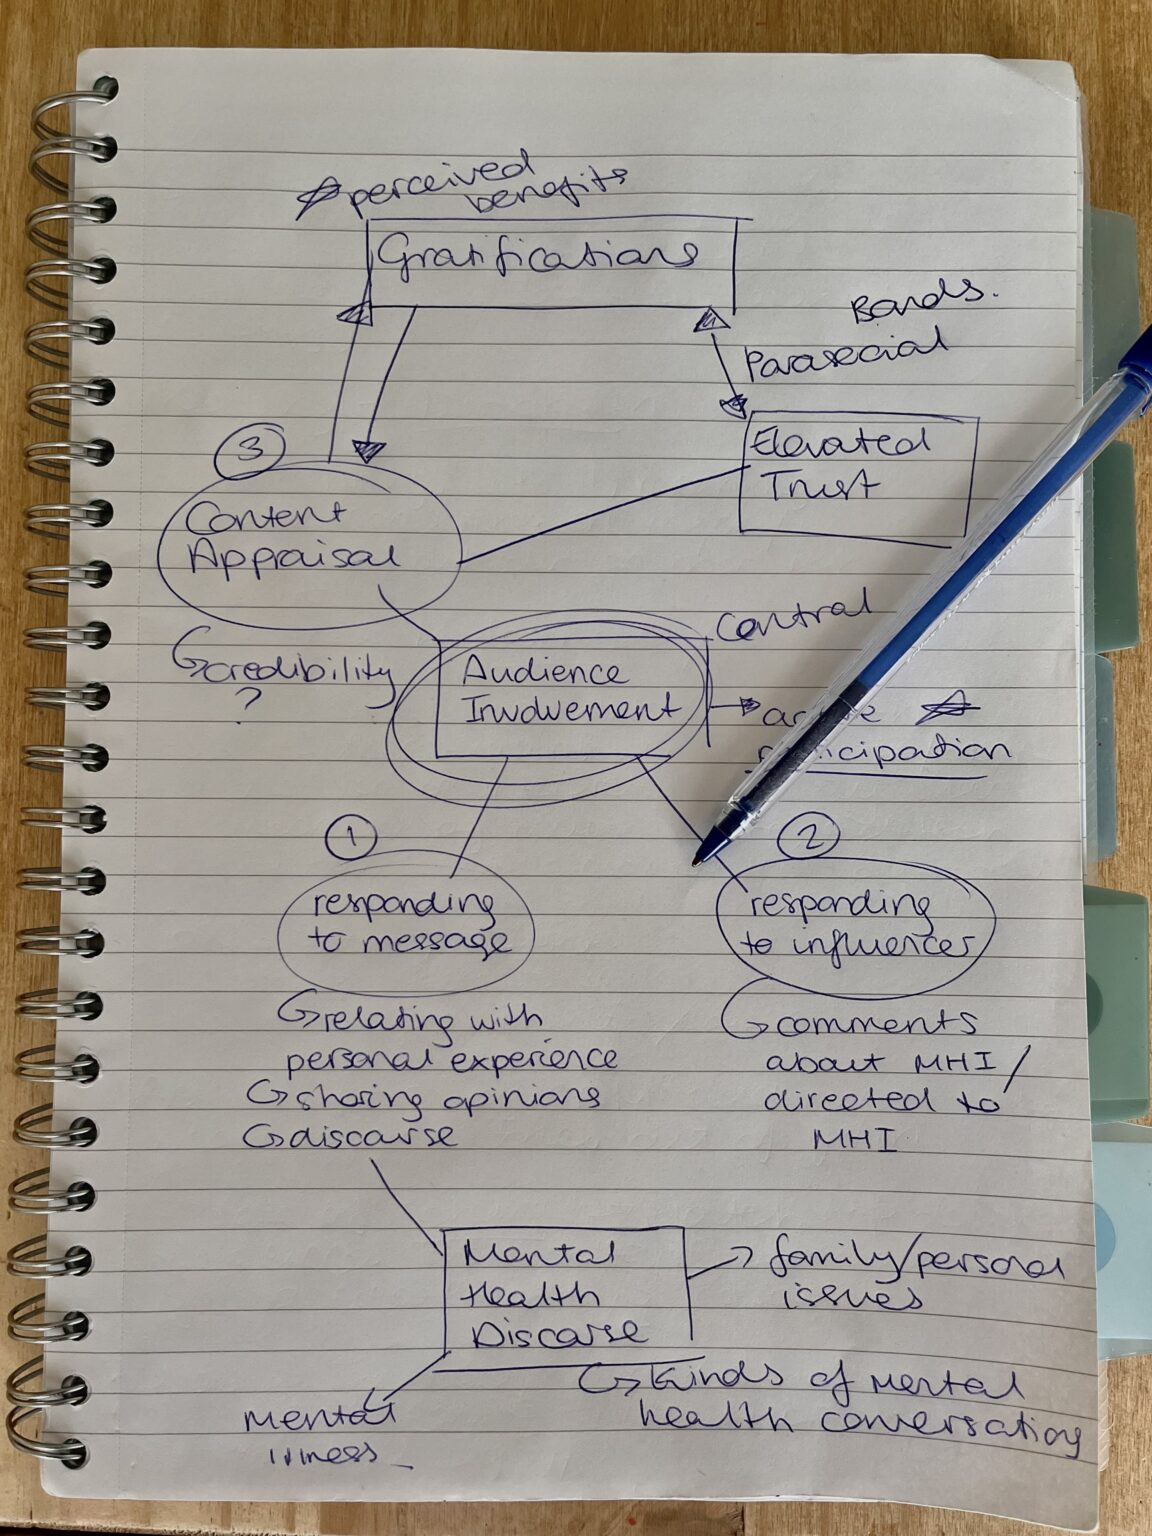 perceived
benefits
Gratifications
Bonds.
Parasocial
3
Elevated
Trust
Content
Appraisal
Central
credibility
?
Audience
Involvement
participation
1
2
responding
to message
responding
to influencer
relating with
personal experience
sharing opinions
discourse
comments
about MHI/
directed to
MHI
Mental
Health
Discourse
family/personal
issues
Kinds of mental
health conversations
Mental
illness